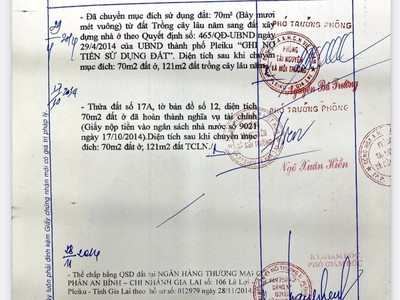 - Đã chuyển mục đích sử dụng đất: 70m² (Bảy mươi
mét vuông) từ đất Trồng cây lâu năm sang đất xây
dựng nhà ở theo Quyết định số: 465/QĐ-UBND ngày
29/4/2014 của UBND thành phố Pleiku "GHI NỢ
TIỀN SỬ DỤNG ĐẤT". Diện tích sau khi chuyển
mục đích: 70m2 đất ở, 121m2 đất trồng cây lâu năm.
PHÓ TRƯỞNG PHÒNG
PHÒNG
TÀI NGUYÊN
VÀ MÔI TRƯỜNG
Nguyễn Bá Trường
- Thửa đất số 17A, tờ bản đồ số 12, diện tích
70m2 đất ở đã hoàn thành nghĩa vụ tài chính
(Giấy nộp tiền vào ngân sách nhà nước số 9021
ngày 17/10/2014).Diện tích sau khi chuyển mục
đích: 70m2 đất ở; 121m2 đất TCLN./.
PHÓ TRƯỞNG PHÒNG
Ngô Xuân Hiền
28
11
2014
Thế chấp bằng QSD đất tại NGÂN HÀNG THƯƠNG MẠI CỔ
PHẦN AN BÌNH – CHI NHÁNH GIA LAI số 106 Lê Lợi
Pleiku - Tỉnh Gia Lai theo hồ sơ số: 012979 ngày 28/11/2014
KT.GIÁM ĐỐC
PHÓ GIÁM ĐỐC
luôn phải đính kèm Giấy chứng nhận mới có giá trị pháp lý.